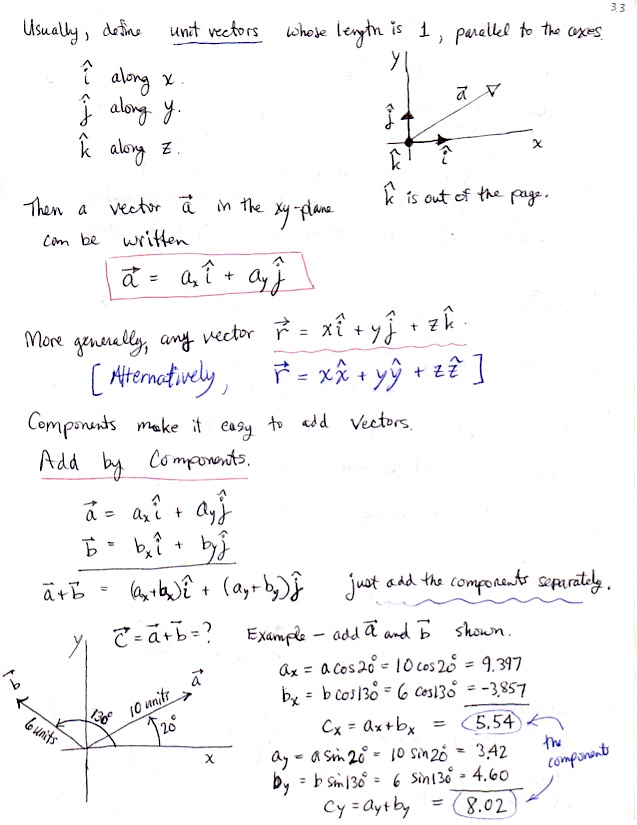 3.3
Usually, define unit vectors whose length is 1, parallel to the axes.
î along x.
ĵ along y.
k̂ along z.
y
a⃗
ĵ
k̂
î
x
k̂ is out of the page.
Then a vector a⃗ in the xy-plane
can be written
a⃗ = aₓ î + a_y ĵ
More generally, any vector r⃗ = xî + yĵ + zk̂.
[Alternatively, r⃗ = xx̂ + yŷ + zẑ]
Components make it easy to add vectors.
Add by Components.
a⃗ = aₓ î + a_y ĵ
b⃗ = bₓ î + b_y ĵ
a⃗+b⃗ = (aₓ+bₓ)î + (a_y+b_y)ĵ just add the components separately.
y
c⃗ = a⃗+b⃗ = ?
b⃗
6 units
130°
10 units
a⃗
20°
x
Example - add a⃗ and b⃗ shown.
aₓ = a cos20° = 10 cos20° = 9.397
bₓ = b cos130° = 6 cos130° = -3.857
cₓ = aₓ+bₓ = 5.54
a_y = a sin20° = 10 sin20° = 3.42
b_y = b sin130° = 6 sin130° = 4.60
c_y = a_y+b_y = 8.02
the
components